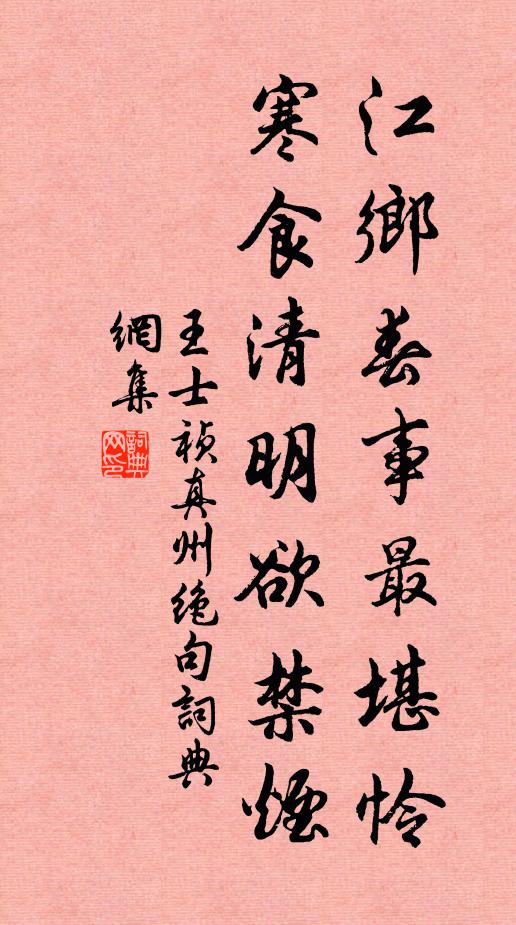 江鄉春事最堪怜
寒食清明欲禁煙
王士禎真州绝句詞典
網集
詞典网印